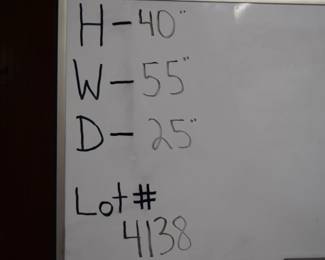 H-40"
W-55"
D-25"
Lot#
4138